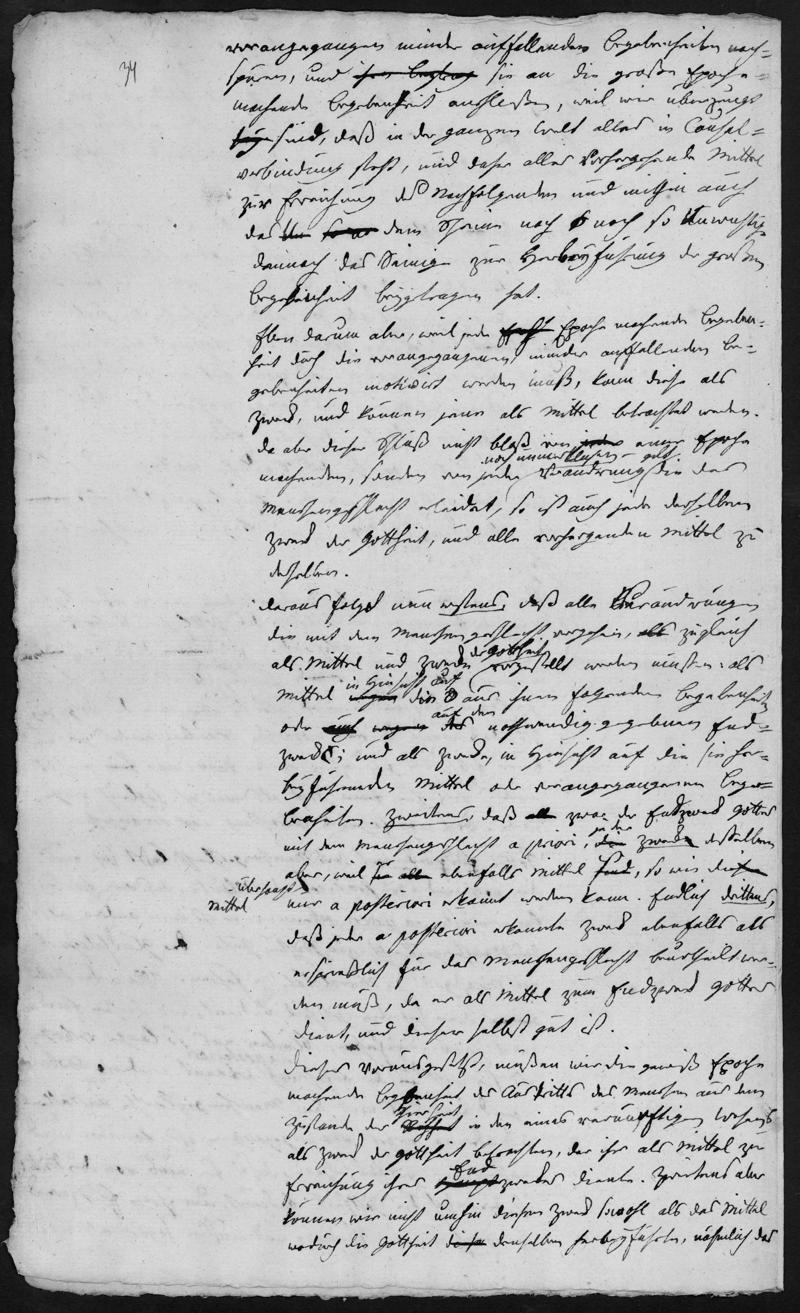 34
vorangegangen minder auffallenden Begebenheiten nach-
spüren, und sie an die große Epoche
machende Begebenheit anschließen, weil wir überzeugt
sind, daß in der ganzen Welt alles in Causal-
verbindung steht, und daher alles Vorhergehende Mittel
zur Erreichung des Nachfolgenden und mithin auch
das dem Scheine nach noch so Unwichtige
dennoch das Seinige zur Herbeyführung der großen
Begebenheit beygetragen hat.
Eben darum aber, weil jede Epoche machende Begeben-
heit durch die vorangegangenen minder auffallenden Be-
gebenheiten motivirt werden muß, kann diese als
Zweck, und können jene als Mittel betrachtet werden.
Da aber dieser Schluß nicht bloß von einer Epoche
machenden, sondern von jeder noch unmerklichern Veändrung gilt, die das
Menschengeschlecht erleidet, so ist auch jede derselben
Zweck der Gottheit, und alle vorhergenden Mittel zu
denselben.
Daraus folgt nun erstens, daß alle Verändrungen
die mit dem Menschengeschlecht vorgehen, zugleich
als Mittel und Zwecke der Gottheit vorgestellt werden müssen: als
Mittel in Hinsicht auf die aus ihnen folgenden Begebenheiten
oder auf den nothwendig gegebenen End-
zweck; und als Zwecke, in Hinsicht auf die sie her-
beyführenden Mittel oder vorangegangenen Bege-
benheiten. Zweitens, daß zwar der Endzweck Gottes
mit dem Menschengeschlecht a priori, jeder Zweck desselben
aber, weil er ebenfalls Mittel ist, so wie
Mittel überhaupt
nur a posteriori erkannt werden kann. Endlich drittens,
daß jeder a posteriori erkannte Zweck ebenfalls als
ersprießlich für das Menschengeschlecht beurtheilt wer-
den muß, da er als Mittel zum Endzweck Gottes
dient, und dieser selbst gut ist.
Dieses vorausgesetzt, müßen wir die gewiß Epoche
machende Begebenheit des Austritts des Menschen aus dem
Zustande der Thierheit in den eines vernünftigen Wesens
als Zweck der Gottheit betrachten, der ihr als Mittel zu
Erreichung ihres Endzweckes diente. Zweitens aber
können wir nicht umhin diesen Zweck sowohl als das Mittel
wodurch die Gottheit denselben herbeyführte, nähmlich das